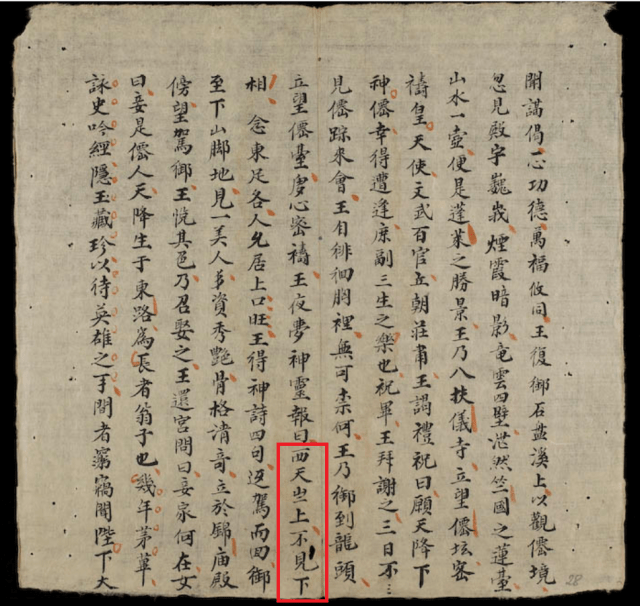 開滿偈一心功德萬福攸同王復御石盤溪上以觀僊境
忽見殿宇巍峩煙霞暗影竜雲四壁茫然竺國之蓮臺
山水一壺便是蓬萊之勝景王乃入扶儀寺立望僊坛密
禱皇天使文武百官立朝莊肅王謁禮祝曰願天降下
神僊幸得遭逢庶副三生之樂也祝畢王拜謝之三日不
見僊踪來會王自徘徊胸裡無可柰何王乃御到龍頭
立望僊臺虔心密禱王夜夢神靈報曰西天岀上不見下
相念東足各人允居上口旺王得神詩四句返駕而囬御
至下山脚地見一美人芽資秀艶骨格清奇立於歸庙殿
傍望駕御王悅其色乃召娶之王還宮問曰妾家何在女
曰妾是僊人天降生于東路為長者翁子也幾年茅草
詠史吟經隱玉藏珍以待英雄之手聞者蕩窩聞陛下大
28